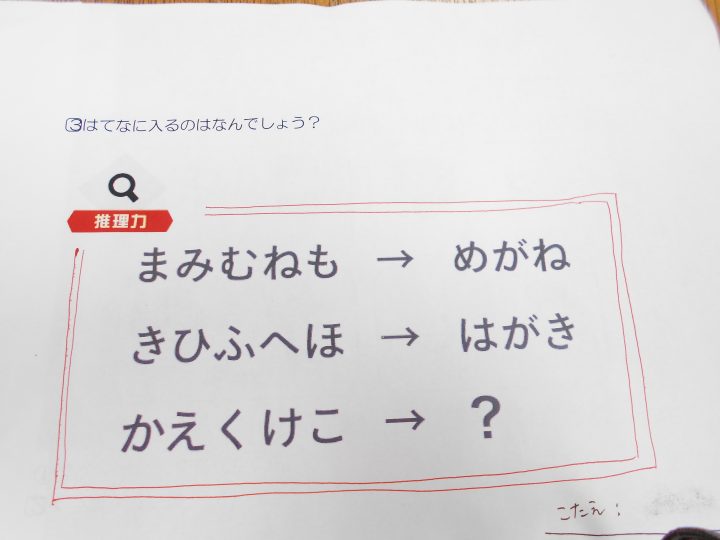 ③はてなに入るのはなんでしょう？
推理力
まみむねも → めがね
きひふへほ → はがき
かえくけこ → ？
こたえ：